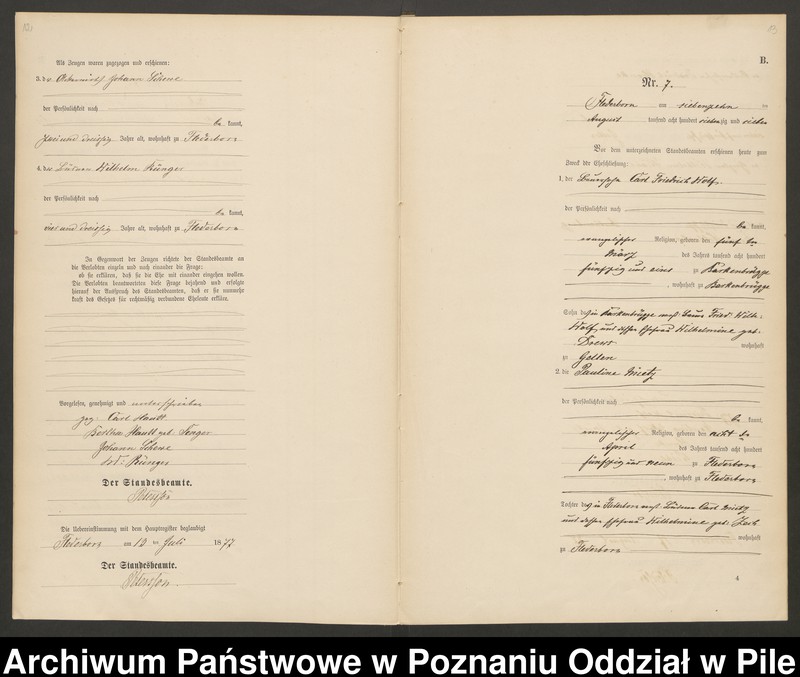 Als Zeugen waren zugezogen und erschienen:
3. der Johann Schene
der Persönlichkeit nach
be kannt,
zweiunddreißig Jahre alt, wohnhaft zu Flederborn
4. der Büdner Wilhelm Rünger
der Persönlichkeit nach
be kannt,
vierunddreißig Jahre alt, wohnhaft zu Flederborn
In Gegenwart der Zeugen richtete der Standesbeamte an
die Verlobten einzeln und nach einander die Frage:
ob sie erklären, daß sie die Ehe mit einander eingehen wollen.
Die Verlobten beantworteten diese Frage bejahend und erfolgte
hierauf der Ausspruch des Standesbeamten, daß er sie nunmehr
kraft des Gesetzes für rechtmäßig verbundene Eheleute erkläre.
Vorgelesen, genehmigt und unterschrieben
gez. Carl Hautt
Bertha Hautt geb. Senger
Johann Schene
Wilh. Rünger
Der Standesbeamte.
Die Uebereinstimmung mit dem Hauptregister beglaubigt
Flederborn am 12 ten Juli 1877
Der Standesbeamte.
B.
Nr. 7.
Flederborn am siebenzehn ten
August tausend acht hundert siebenzig und sieben
Vor dem unterzeichneten Standesbeamten erschienen heute zum
Zweck der Eheschließung:
1. der Bauersohn Carl Friedrich Wolf
der Persönlichkeit nach
be kannt,
evangelischer Religion, geboren den fünf ten
März des Jahres tausend acht hundert
fünfzig und eins zu Barkenbrügge
, wohnhaft zu Barkenbrügge
Sohn des in Barkenbrügge Bauer Fried. Wilh.
Wolf und dessen Ehefrau Wilhelmine geb.
Drews wohnhaft
zu Gellen
2. die Pauline Mietz
der Persönlichkeit nach
be kannt,
evangelischer Religion, geboren den acht ten
April des Jahres tausend acht hundert
fünfzig und neun zu Flederborn
, wohnhaft zu Flederborn
Tochter des in Flederborn Büdner Carl Mietz
und dessen Ehefrau Wilhelmine geb.
, wohnhaft
zu Flederborn
4
Archiwum Państwowe w Poznaniu Oddział w Pile